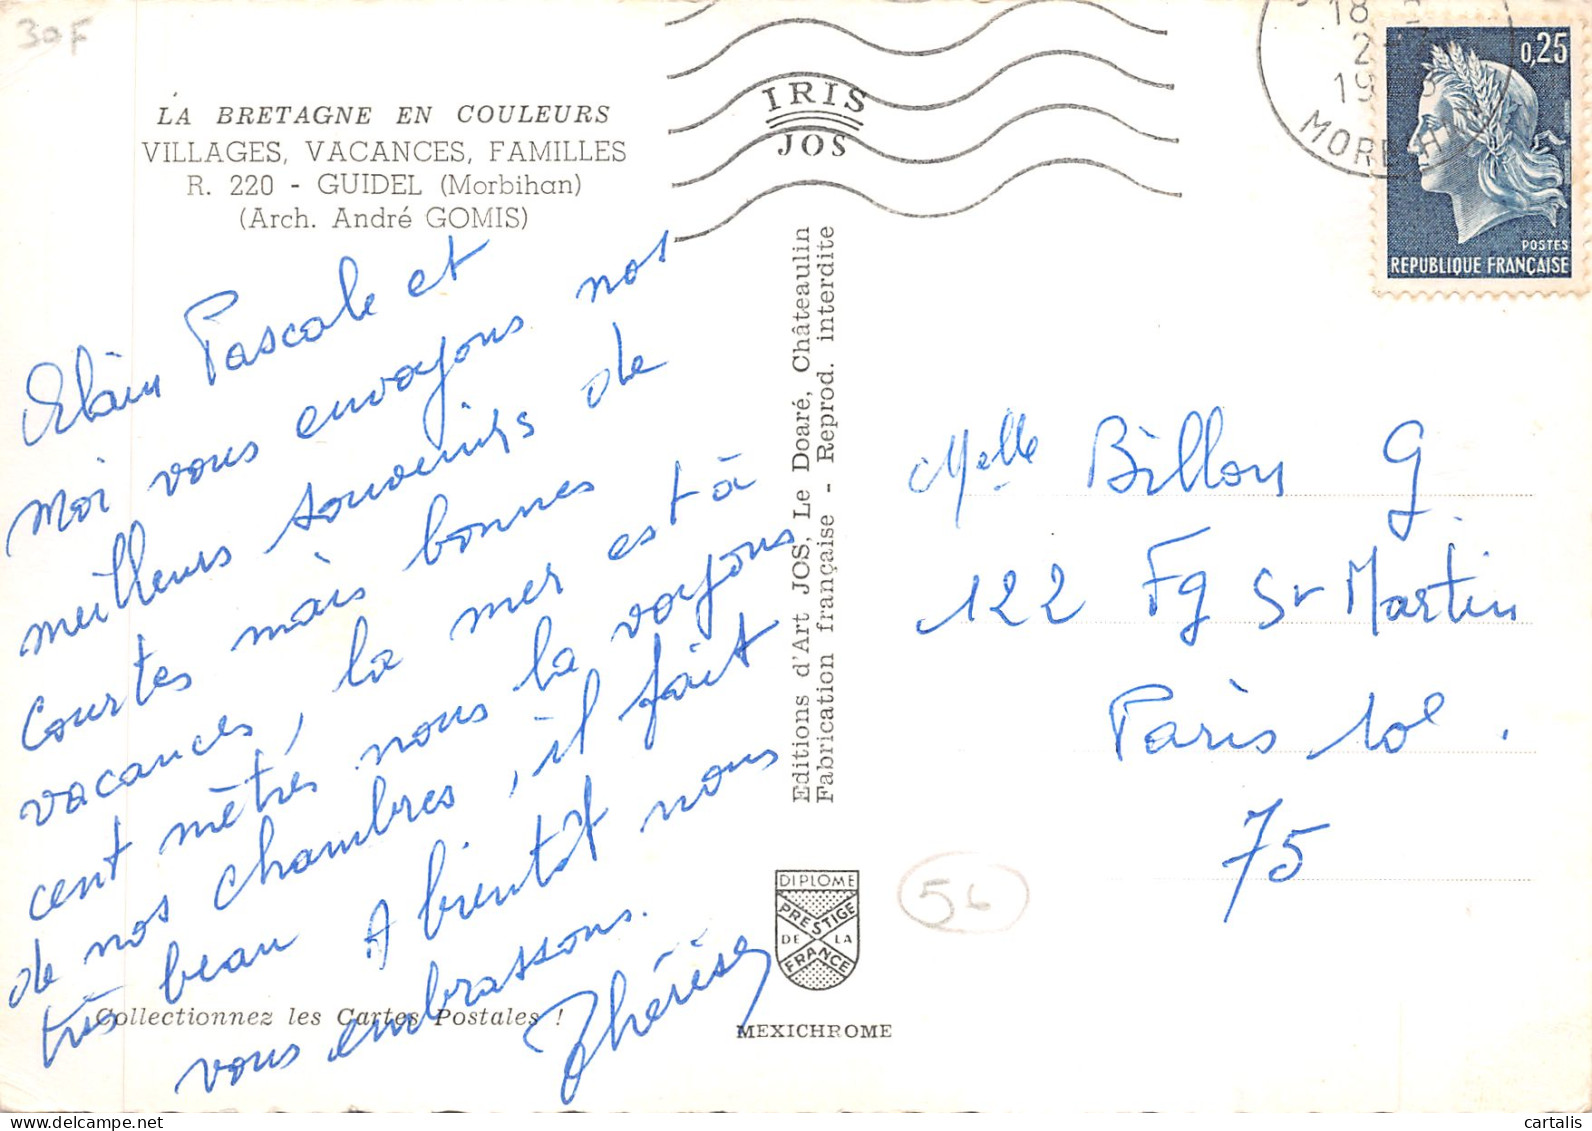 30F
LA BRETAGNE EN COULEURS
VILLAGES, VACANCES, FAMILLES
R. 220 - GUIDEL (Morbihan)
(Arch. André GOMIS)
Alain Pascale et
moi vous envoyons nos
meilleurs souvenirs de
courtes mais bonnes
vacances, la mer est à
cent mètres nous la voyons
de nos chambres, il fait
très beau A bientôt nous
vous embrassons.
Thérèse
Collectionnez les Cartes Postales !
IRIS
JOS
Editions d'Art JOS, Le Doaré, Châteaulin
Fabrication française - Reprod. interdite
DIPLOME
PRESTIGE
DE LA
FRANCE
MEXICHROME
18
2
19
MORBIHAN
0,25
POSTES
REPUBLIQUE FRANÇAISE
Melle Billon G
122 Fg St Martin
Paris 10e.
75
56
cartalis
delcampe.net